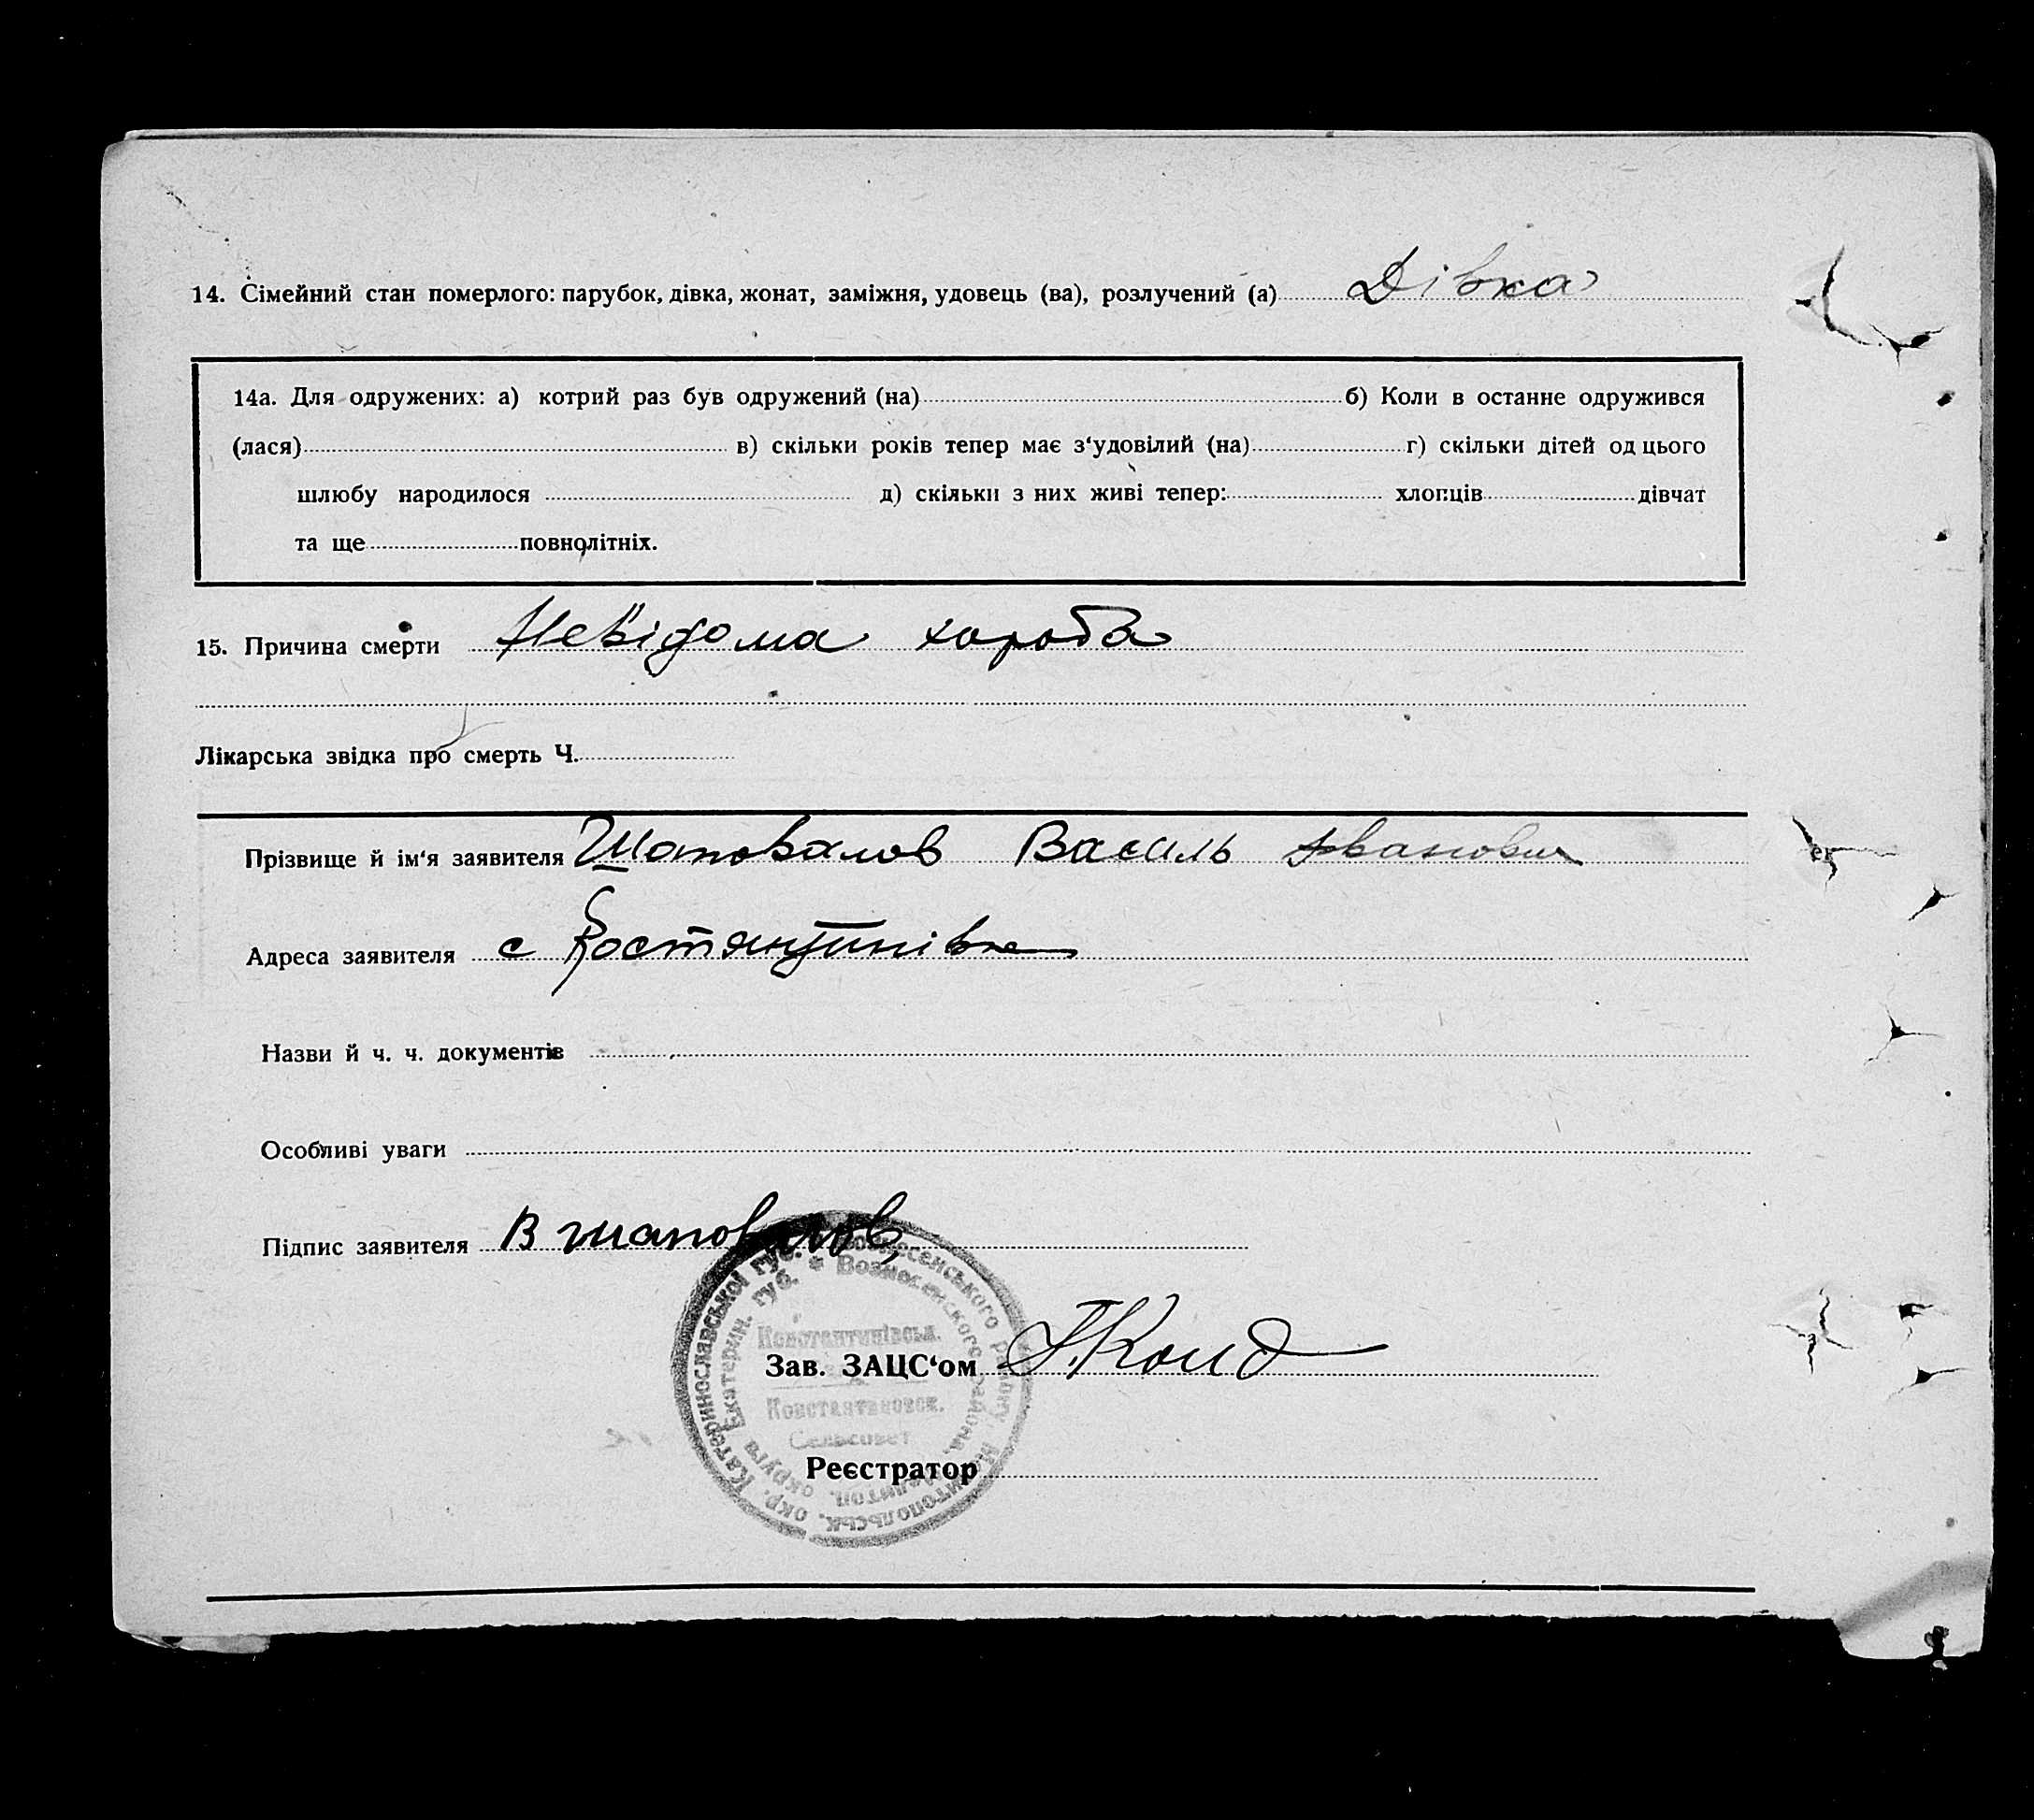 14. Сімейний стан померлого: парубок, дівка, жонат, заміжня, удовець (ва), розлучений (а) Дівка
14а. Для одружених: а) котрий раз був одружений (на) б) Коли в останне одружився
(лася) в) скільки років тепер має з‘удовілий (на) г) скільки дітей од цього
шлюбу народилося д) скільки з них живі тепер: хлопців дівчат
та ще повнолітніх.
15. Причина смерти Невідома хороба
Лікарська звідка про смерть Ч.
Прізвище й ім‘я заявителя Шаповалов Василь Іванович
Адреса заявителя с Костянтинівка
Назви й ч. ч. документів
Особливі уваги
Підпис заявителя В Шаповалов
Катеринославської губ. Вознесенського району Мелітопольськ. окр.
Екатерин. губ. * Вознесенского района, Мелитоп. округа
Константинівськ.
Зав. ЗАЦС‘ом
Константиновск.
Сельсовет
Реєстратор